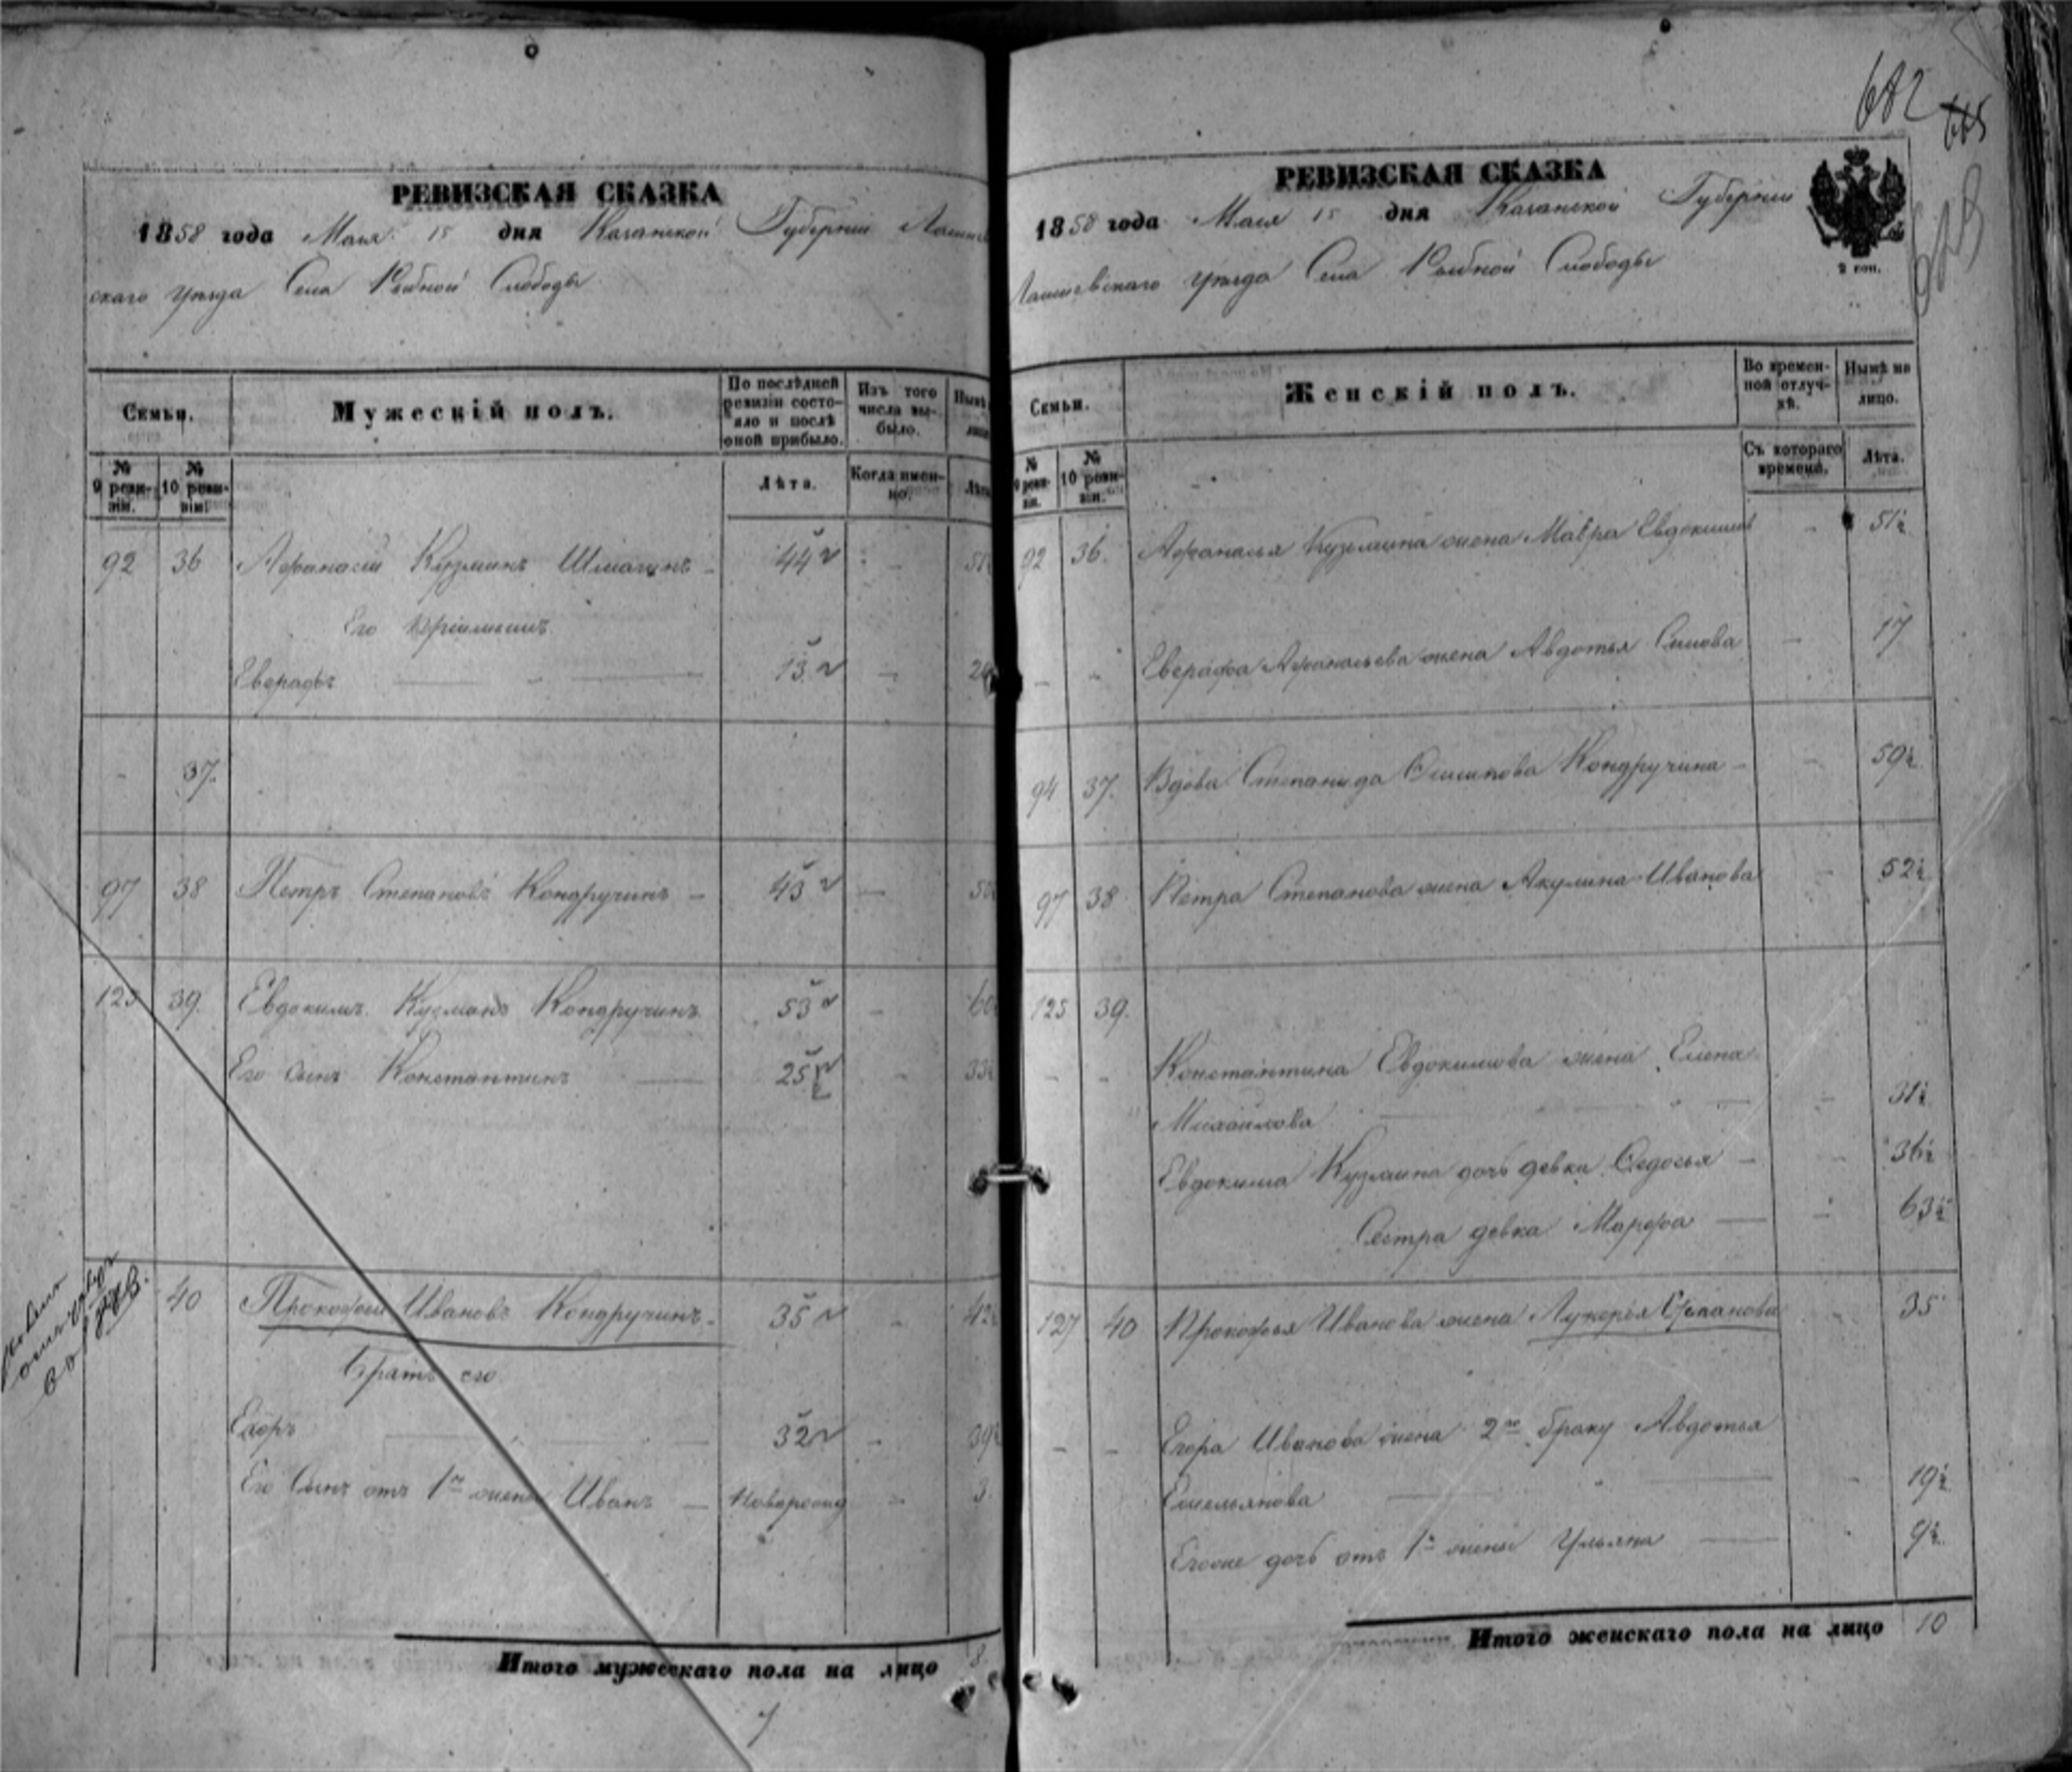 682 665
РЕВИЗСКАЯ СКАЗКА
1858 года Маія 15 дня Казанской Губерніи Лаишев
скаго уѣзда Села Рыбной Слободы
Семьи.
Мужескій полъ.
По послѣдней ревизіи состояло и послѣ оной прибыло.
Изъ того числа выбыло.
Нынѣ
№ 9 ревизіи.
№ 10 ревизіи.
Лѣта.
Когда именно.
Лѣта
92 36 Афанасій Кузминъ Шмагинъ 44 51
Его Пріимышъ
Евграфъ 13 20
37.
97 38 Петръ Степановъ Кондручинъ 43 50
125 39. Евдокимъ Кузминъ Кондручинъ 53 60
Его сынъ Константинъ 25½ 33
40 Прокофій Ивановъ Кондручинъ 35 42
Братъ его
Егоръ 32 39
Его Сынъ отъ 1й жены Иванъ новорожд 3
Итого мужескаго пола на лицо 8
РЕВИЗСКАЯ СКАЗКА
1858 года Маія 15 дня Казанской Губерніи
2 коп.
Лаишевскаго уѣзда Села Рыбной Слободы
Семьи.
Женскій полъ.
Во временной отлучкѣ.
Нынѣ на лицо.
№ 9 ревизіи.
№ 10 ревизіи.
Съ котораго времени.
Лѣта.
92 36. Афанасья Кузьмина жена Мавра Евдокимова 51½
Евграфа Афанасьева жена Авдотья Симова 17
94 37. Вдова Степанида Осипова Кондручина 59½
97 38 Петра Степанова жена Акулина Иванова 52½
125 39.
Константина Евдокимова жена Елена
Михайлова 31½
Евдокима Кузмина дочь девка Федосья 36½
Сестра девка Марфа 63½
127 40 Прокофья Иванова жена Лукерья Степанова 35
Егора Иванова жена 2го браку Авдотья
Емельянова 19½
Егоже дочь отъ 1й жены Ульяна 9½
Итого женскаго пола на лицо 10